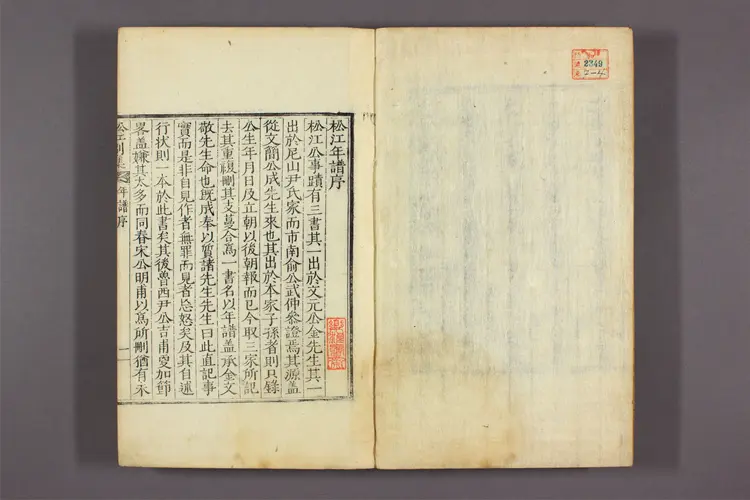 2349
2-4
松江年譜序
松江公事蹟有三書其一出於文元公金先生其一
出於尼山尹氏家而市南俞公武仲參證焉其源蓋
從文簡公成先生來也其出於本家子孫者則只錄
公生年月日及立朝以後朝報而已今取三家所記
去其重複刪其支蔓合爲一書名以年譜蓋承金文
敬先生命也旣成奉以質諸先生先生曰此直記事
實而是非自見作者無罪而見者忘怒矣及其自述
行狀則一本於此書矣其後魯西尹公吉甫更加節
畧盖嫌其太多而同春宋公明甫以爲所刪猶有未
松江別集 年譜序 一